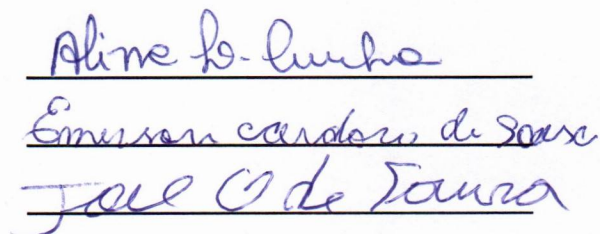 Aline L. Cunha
Emerson cardozo de Souza
Joel O de Souza